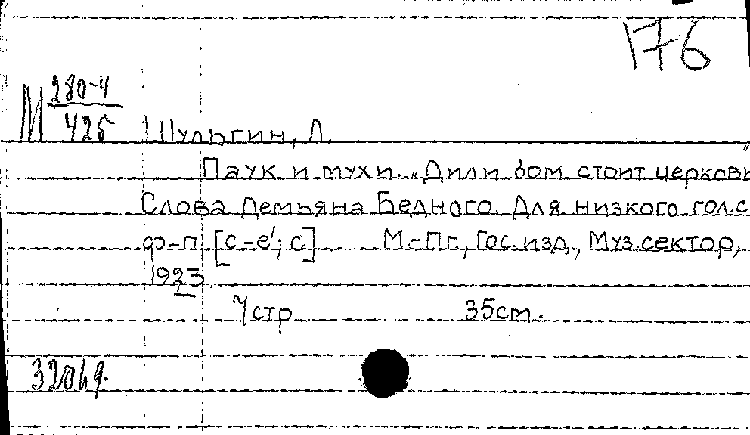 176
М 280-4
425
Шульгин, Л.
Паук и мухи. „Дили бом стоит церковь
Слова Демьяна Бедного. Для низкого голс
ф-п [c-e'; c] М.-Пг., Гос. изд., Муз. сектор,
1923
7 стр 35 см.